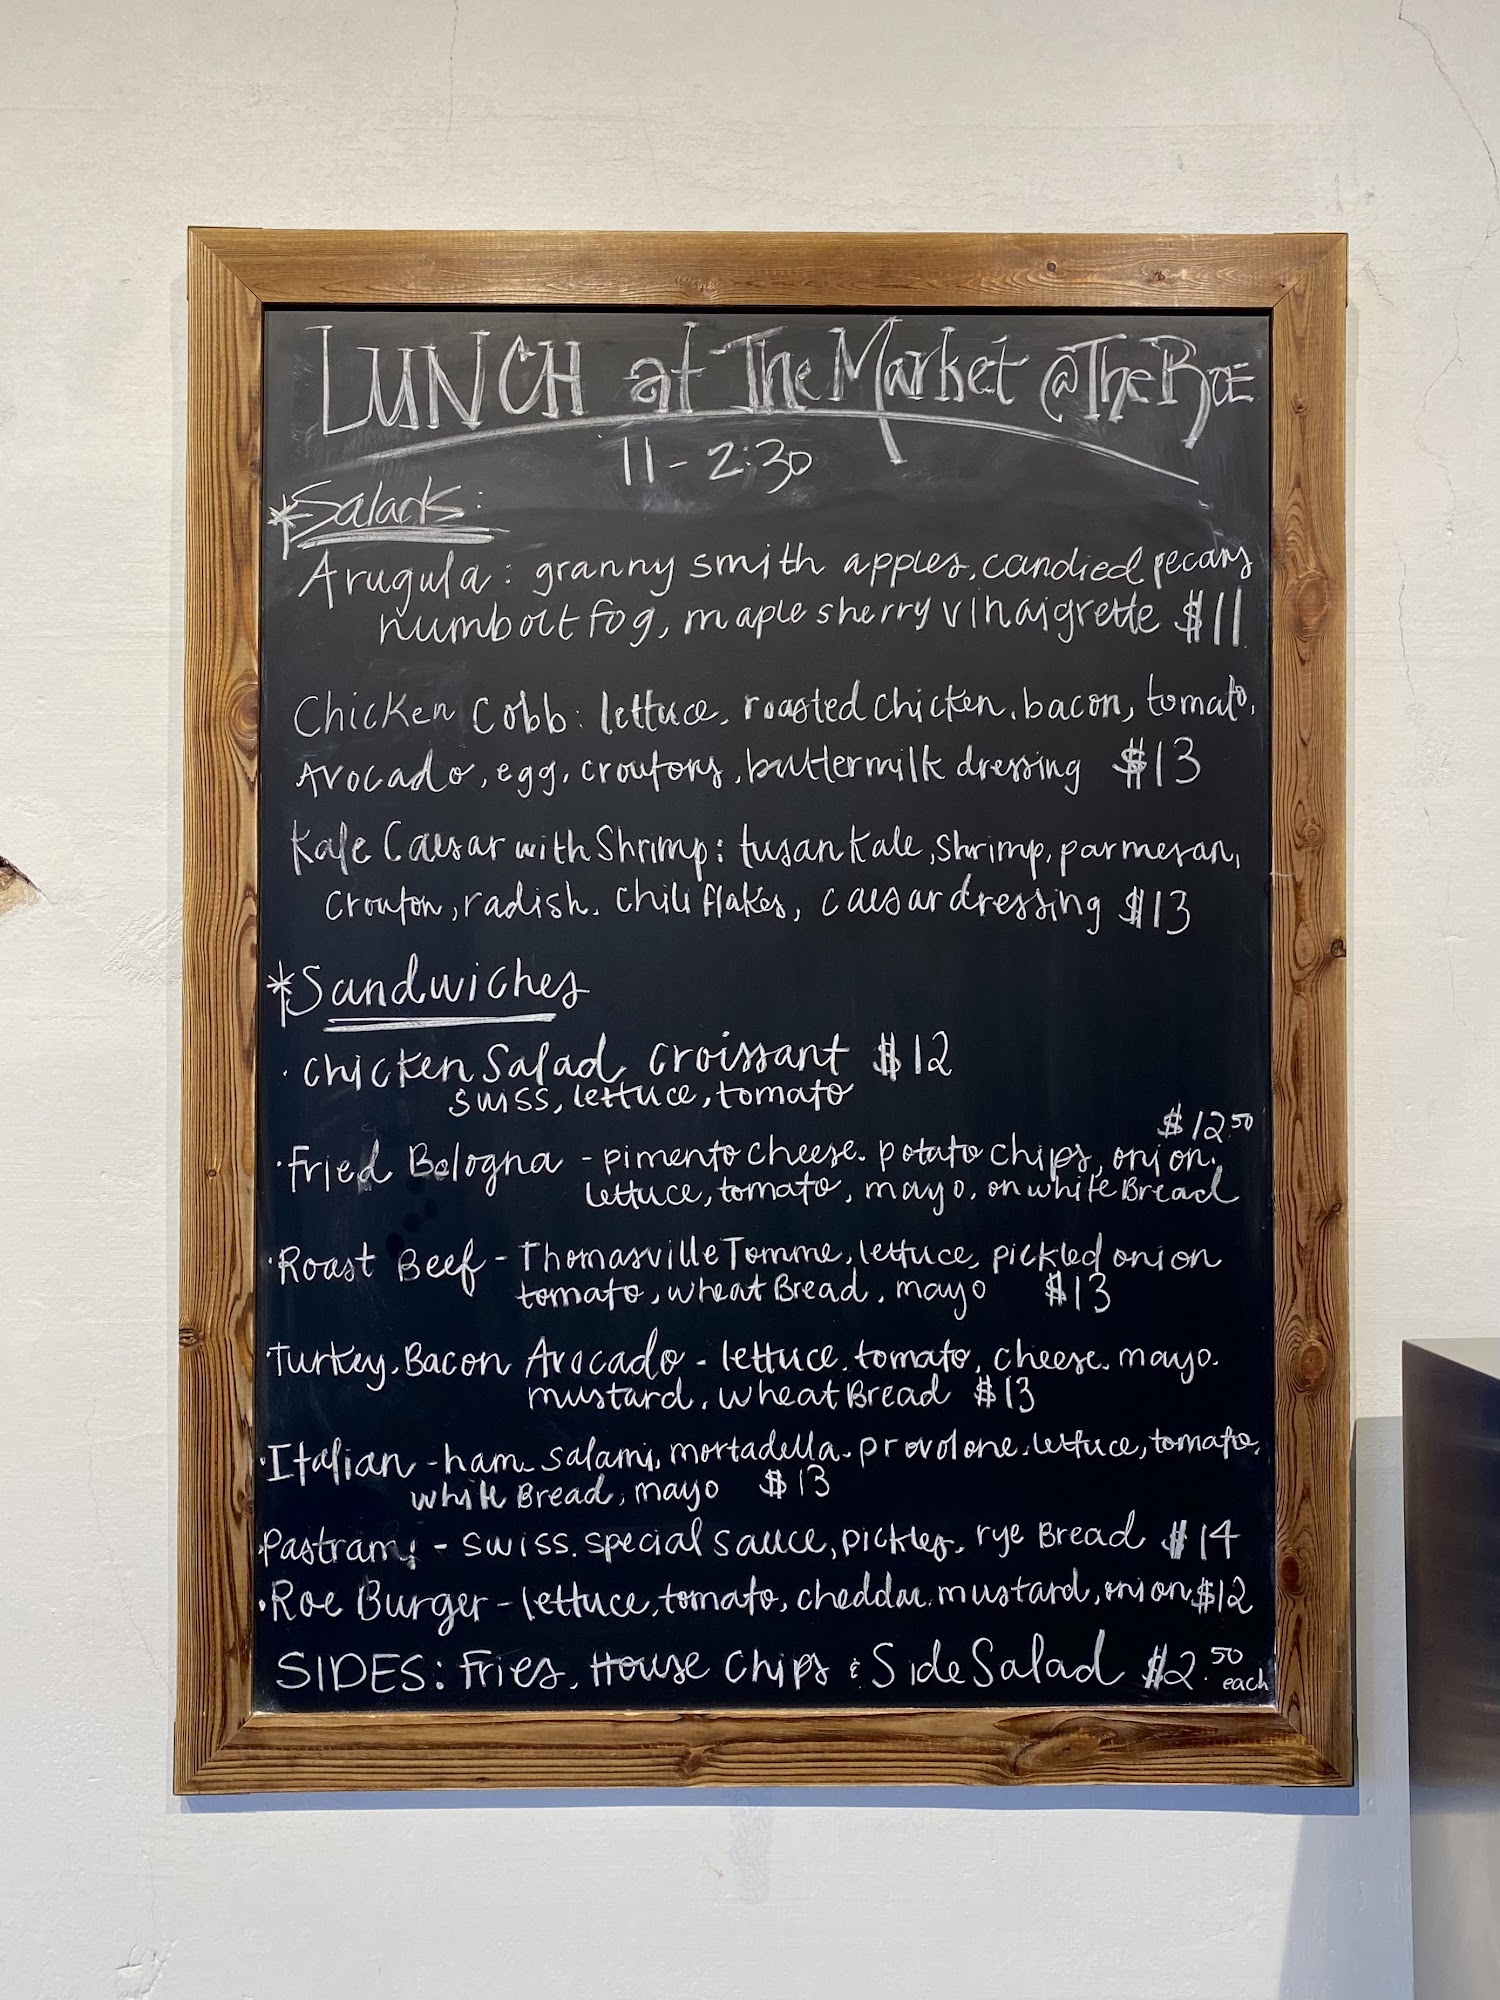 LUNCH at The Market @ The Roe
11 - 2:30
*Salads:
Arugula: granny smith apples, candied pecans
humbolt fog, maple sherry vinaigrette $11
Chicken Cobb: lettuce, roasted chicken, bacon, tomato,
Avocado, egg, croutons, buttermilk dressing $13
Kale Caesar with Shrimp: tusan kale, shrimp, parmesan,
crouton, radish, chili flakes, caesar dressing $13
*Sandwiches
· Chicken Salad Croissant $12
swiss, lettuce, tomato
$12.50
· Fried Bologna - pimento cheese, potato chips, onion,
lettuce, tomato, mayo, on white Bread
· Roast Beef - Thomasville Tomme, lettuce, pickled onion
tomato, wheat Bread, mayo $13
· Turkey, Bacon Avocado - lettuce, tomato, cheese, mayo,
mustard, wheat Bread $13
· Italian - ham, salami, mortadella, provolone, lettuce, tomato,
white Bread, mayo $13
· Pastrami - swiss, special sauce, pickles, rye Bread $14
· Roe Burger - lettuce, tomato, cheddar, mustard, onion $12
SIDES: Fries, House Chips & Side Salad $2.50
each